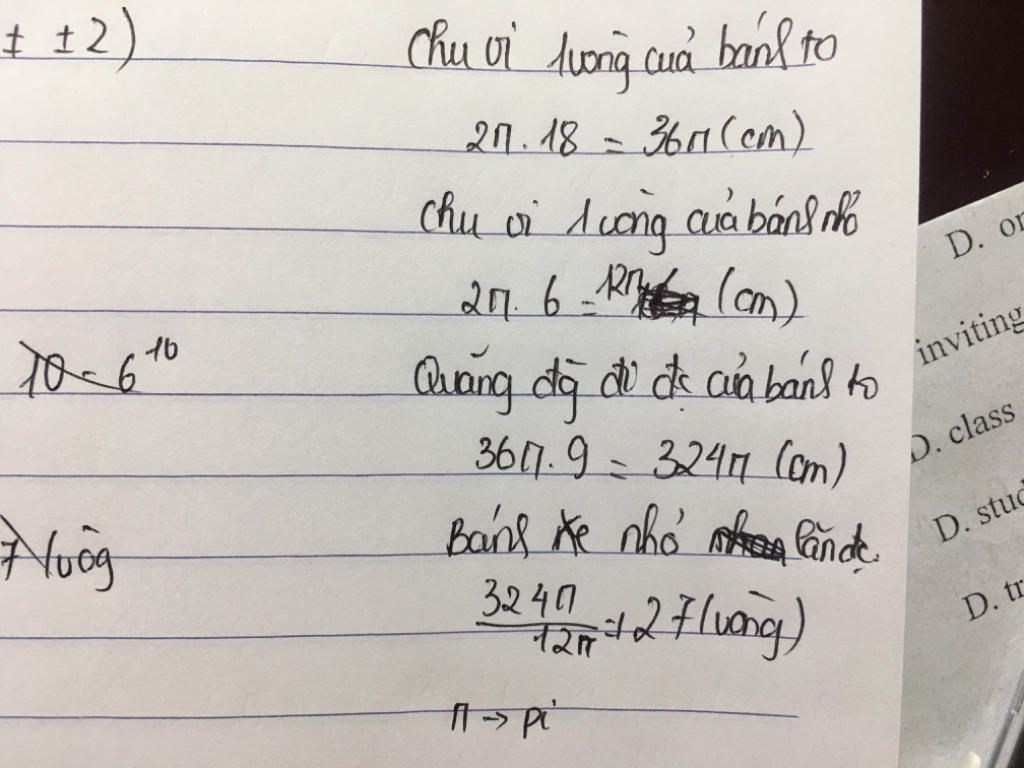 ± ±2)
chu vi 1 vòng của bánh to
2π.18 = 36π (cm)
chu vi 1 vòng của bánh nhỏ
2π.6 = 12π (cm)
10 - 6 10
Quãng đg̀ đi đc của bánh to
36π.9 = 324π (cm)
7 vòg
Bánh xe nhỏ lăn đc.
324π/12π = 27 (vòng)
π → pi
D. or
inviting
D. class
D. stud
D. tr